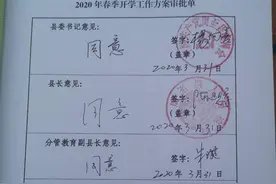 2020 年春季开学工作方案审批单
县委书记意见:
同意
签字:
(盖章)
2020 年 3 月 31 日
县长意见:
同意
签字:
(盖章)
2020 年 3 月 31 日
分管教育副县长意见:
同意
签字:
2020 年 3 月 31 日